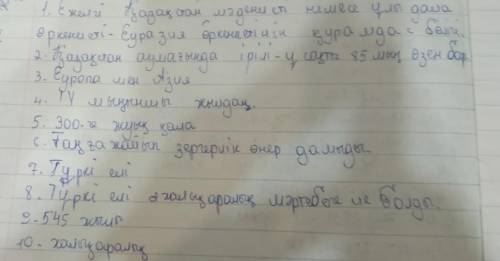 1. Ежелгі Қазақстан мәдениеті немесе ұлы дала
өркениеті - Еуразия өркениетінің құрамдас бөлігі.
2. Қазақстан аумағында ірілі-ұсақты 85 мың өзен бар
3. Еуропа мен Азия
4. IV мыңыншы жылдан.
5. 300-ге жуық қала
6. Таңғажайып зергерлік өнер дамыды.
7. Түркі елі
8. Түркі елі халықаралық мәртебеге ие болды.
9. 545 жылы
10. халықаралық